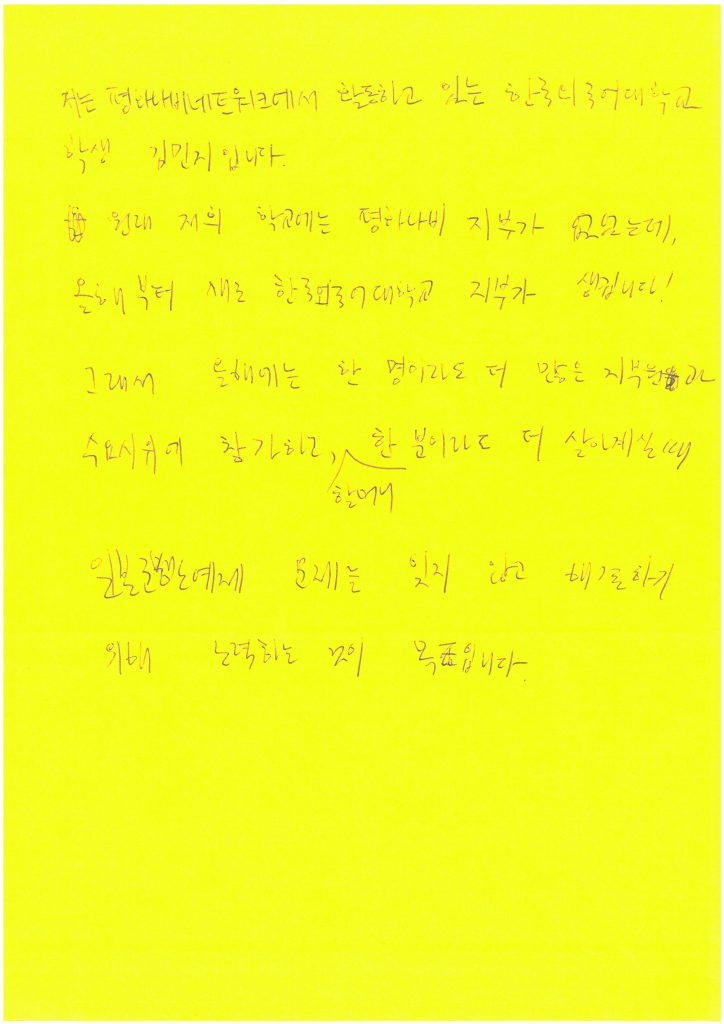 저는 평화나비네트워크에서 활동하고 있는 한국외국어대학교
학생 김민지입니다.
원래 저희 학교에는 평화나비 지부가 없었는데,
올해부터 새로 한국외국어대학교 지부가 생깁니다!
그래서 올해에는 한 명이라도 더 많은 지부원과
수요시위에 참가하고, 한 분이라도 더 살아계실 때
할머니
일본군성노예제 문제를 잊지 않고 해결하기
위해 노력하는 것이 목표입니다.